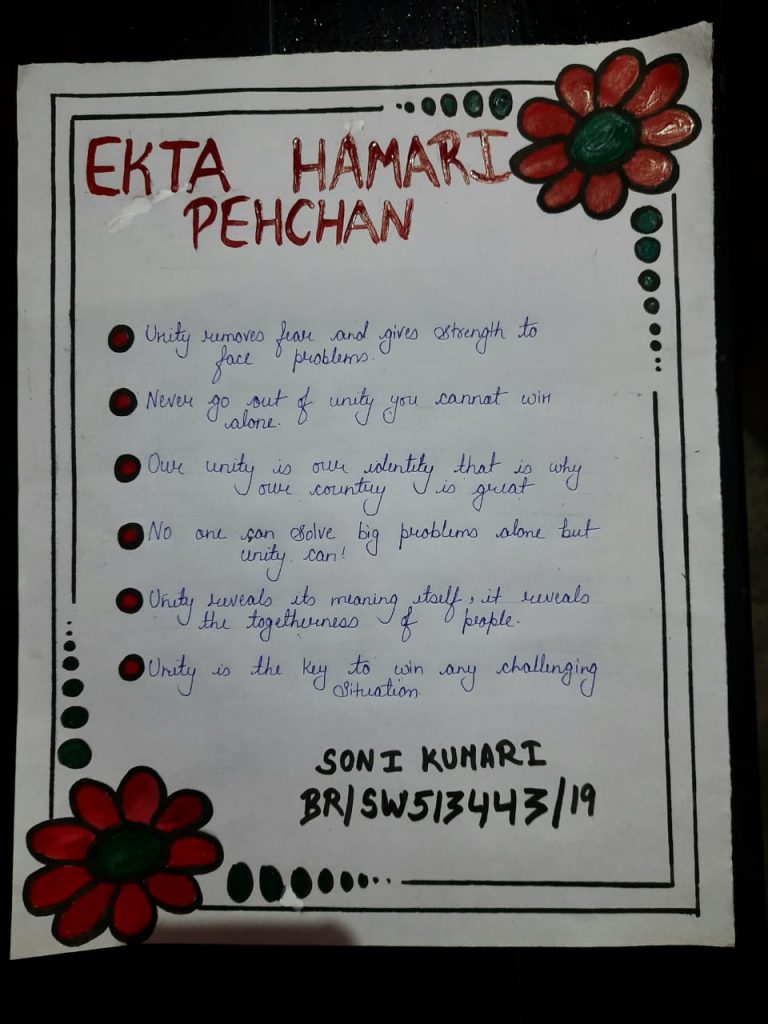 EKTA HAMARI
PEHCHAN
Unity removes fear and gives strength to
face problems.
Never go out of unity you cannot win
alone.
Our unity is our identity that is why
our country is great
No one can solve big problems alone but
unity can!
Unity reveals its meaning itself, it reveals
the togetherness of people.
Unity is the key to win any challenging
situation
SONI KUMARI
BR/SW513443/19